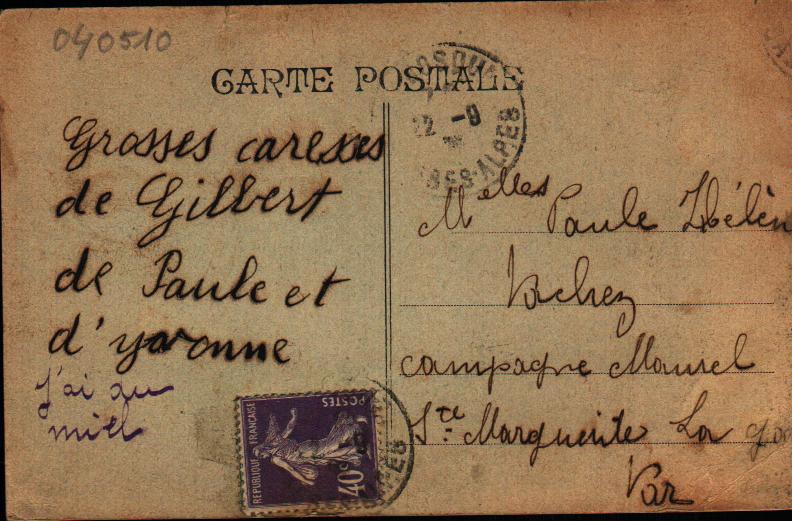 040510
CARTE POSTALE
22 -9
BSES-ALPES
Grosses caresses
de Gilbert
de Paule et
d'yvonne
j'ai du
miel
Melles Paule Hélèn
Vachez
campagne Maurel
Ste Marguerite La
Var
REPUBLIQUE FRANÇAISE
POSTES
40c
ALPES